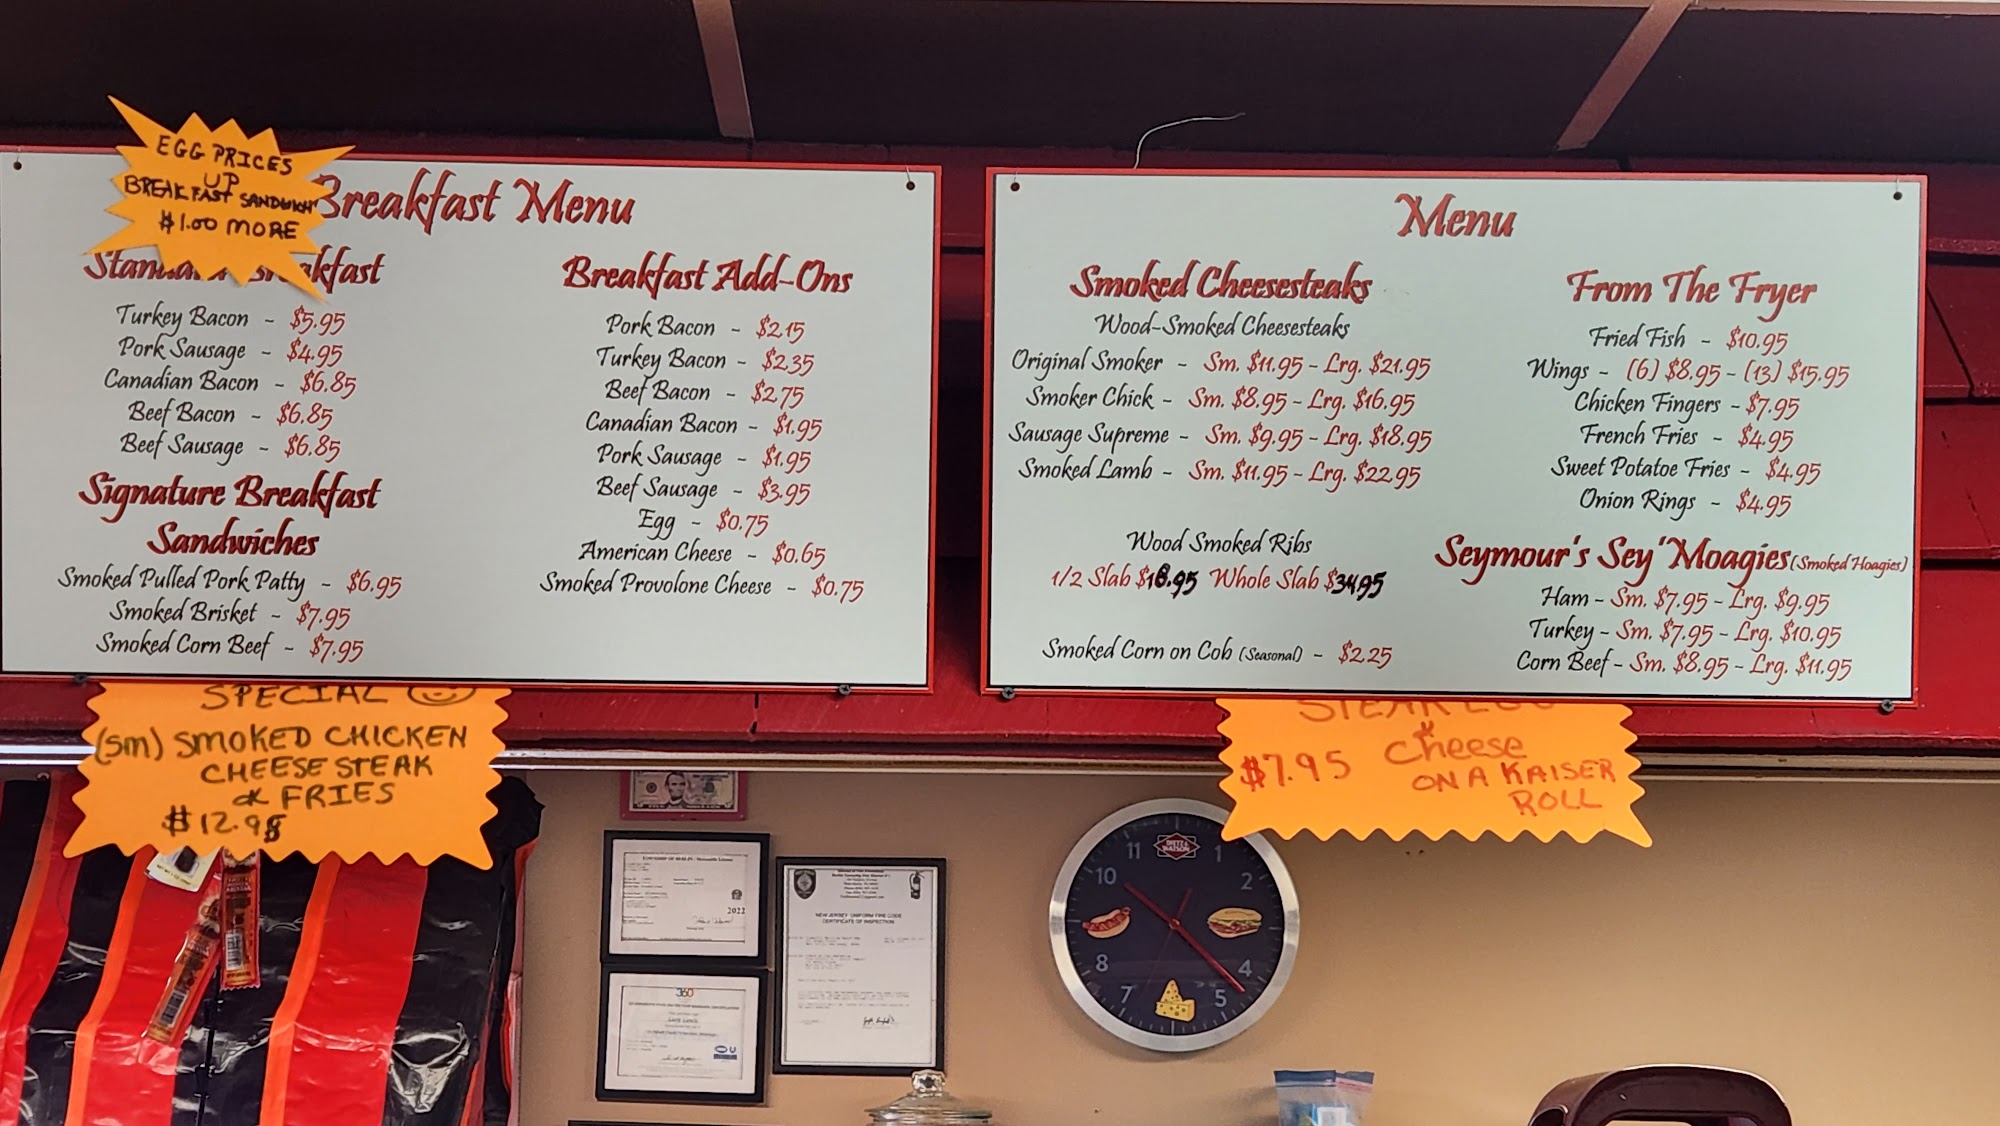 EGG PRICES
UP
BREAKFAST SANDWICH
$1.00 MORE
Breakfast Menu
Standard Breakfast
Turkey Bacon - $5.95
Pork Sausage - $4.95
Canadian Bacon - $6.85
Beef Bacon - $6.85
Beef Sausage - $6.85
Signature Breakfast
Sandwiches
Smoked Pulled Pork Patty - $6.95
Smoked Brisket - $7.95
Smoked Corn Beef - $7.95
Breakfast Add-Ons
Pork Bacon - $2.15
Turkey Bacon - $2.35
Beef Bacon - $2.75
Canadian Bacon - $1.95
Pork Sausage - $1.95
Beef Sausage - $3.95
Egg - $0.75
American Cheese - $0.65
Smoked Provolone Cheese - $0.75
Menu
Smoked Cheesesteaks
Wood-Smoked Cheesesteaks
Original Smoker - Sm. $11.95 - Lrg. $21.95
Smoker Chick - Sm. $8.95 - Lrg. $16.95
Sausage Supreme - Sm. $9.95 - Lrg. $18.95
Smoked Lamb - Sm. $11.95 - Lrg. $22.95
Wood Smoked Ribs
1/2 Slab $18.95 Whole Slab $34.95
Smoked Corn on Cob (Seasonal) - $2.25
From The Fryer
Fried Fish - $10.95
Wings - (6) $8.95 - (13) $15.95
Chicken Fingers - $7.95
French Fries - $4.95
Sweet Potatoe Fries - $4.95
Onion Rings - $4.95
Seymour's Sey'Moagies (Smoked Hoagies)
Ham - Sm. $7.95 - Lrg. $9.95
Turkey - Sm. $7.95 - Lrg. $10.95
Corn Beef - Sm. $8.95 - Lrg. $11.95
SPECIAL
(sm) SMOKED CHICKEN
CHEESE STEAK
& FRIES
$12.95
STEAK EGG
&
$7.95 Cheese
ON A KAISER
ROLL
2022
NEW JERSEY UNIFORM FIRE CODE
CERTIFICATE OF INSPECTION
360
DIETZ &
WATSON
11
1
10
2
8
4
7
5